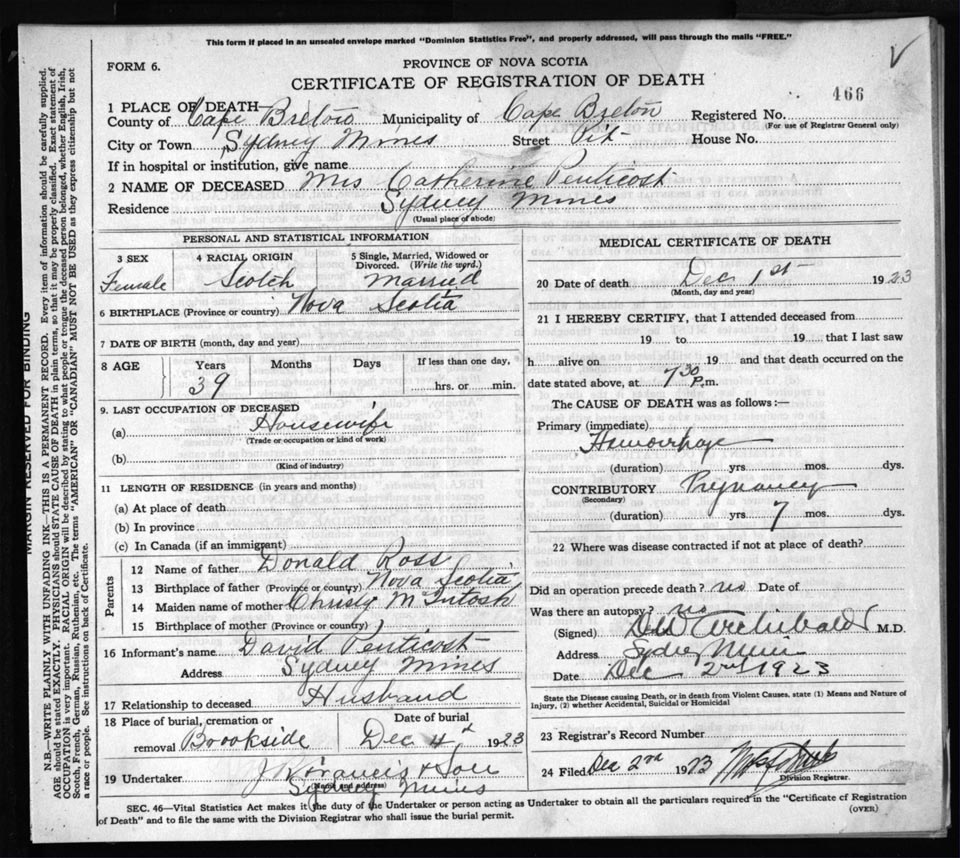 This form if placed in an unsealed envelope marked "Dominion Statistics Free", and properly addressed, will pass through the mails "FREE."
FORM 6.
PROVINCE OF NOVA SCOTIA
CERTIFICATE OF REGISTRATION OF DEATH
466
1 PLACE OF DEATH—
County of Cape Breton Municipality of Cape Breton Registered No.
(For use of Registrar General only)
City or Town Sydney Mines Street Pit House No.
If in hospital or institution, give name
2 NAME OF DECEASED Mrs Catherine Penticost
Residence Sydney Mines
(Usual place of abode)
PERSONAL AND STATISTICAL INFORMATION
3 SEX 4 RACIAL ORIGIN 5 Single, Married, Widowed or Divorced. (Write the word.)
Female Scotch Married
6 BIRTHPLACE (Province or country) Nova Scotia
7 DATE OF BIRTH (month, day and year)
8 AGE Years Months Days If less than one day,
39 hrs. or min.
9. LAST OCCUPATION OF DECEASED
(a) Housewife
(Trade or occupation or kind of work)
(b)
(Kind of industry)
11 LENGTH OF RESIDENCE (in years and months)
(a) At place of death
(b) In province
(c) In Canada (if an immigrant)
Parents
12 Name of father Donald Ross
13 Birthplace of father (Province or country) Nova Scotia
14 Maiden name of mother Christy McIntosh
15 Birthplace of mother (Province or country)
16 Informant's name David Penticost
Address Sydney Mines
17 Relationship to deceased Husband
18 Place of burial, cremation or removal Brookside
Date of burial
Dec 4th 1923
19 Undertaker J R Francis & Son
(Name and address)
Sydney Mines
MEDICAL CERTIFICATE OF DEATH
20 Date of death Dec 1st 1923
(Month, day and year)
21 I HEREBY CERTIFY, that I attended deceased from
19 to 19 that I last saw
h alive on 19 and that death occurred on the
date stated above, at 7 30 P.m.
The CAUSE OF DEATH was as follows:—
Primary (immediate)
Hemorrhage
(duration) yrs. mos. dys.
CONTRIBUTORY Pregnancy
(Secondary)
(duration) yrs 7 mos. dys.
22 Where was disease contracted if not at place of death?
Did an operation precede death? no Date of
Was there an autopsy? no
(Signed) Archibald M.D.
Address Sydney Mines
Date Dec 2nd 1923
State the Disease causing Death, or in death from Violent Causes, state (1) Means and Nature of
Injury, (2) whether Accidental, Suicidal or Homicidal
23 Registrar's Record Number
24 Filed Dec 2nd 1923
Division Registrar.
SEC. 46—Vital Statistics Act makes it the duty of the Undertaker or person acting as Undertaker to obtain all the particulars required in the "Certificate of Registration
(OVER)
of Death" and to file the same with the Division Registrar who shall issue the burial permit.
MARGIN RESERVED FOR BINDING
N.B.—WRITE PLAINLY WITH UNFADING INK—THIS IS A PERMANENT RECORD. Every item of information should be carefully supplied.
AGE should be stated EXACTLY. PHYSICIANS should STATE CAUSE OF DEATH in plain terms, so that it may be properly classified. Exact statement of
OCCUPATION is very important. RACIAL ORIGIN will be described by stating to what people or tongue the deceased person belonged, whether English, Irish,
Scotch, French, German, Russian, Ruthenian, etc. The terms "AMERICAN" OR "CANADIAN" MUST NOT BE USED as they express citizenship but not
a race or people. See instructions on back of Certificate.